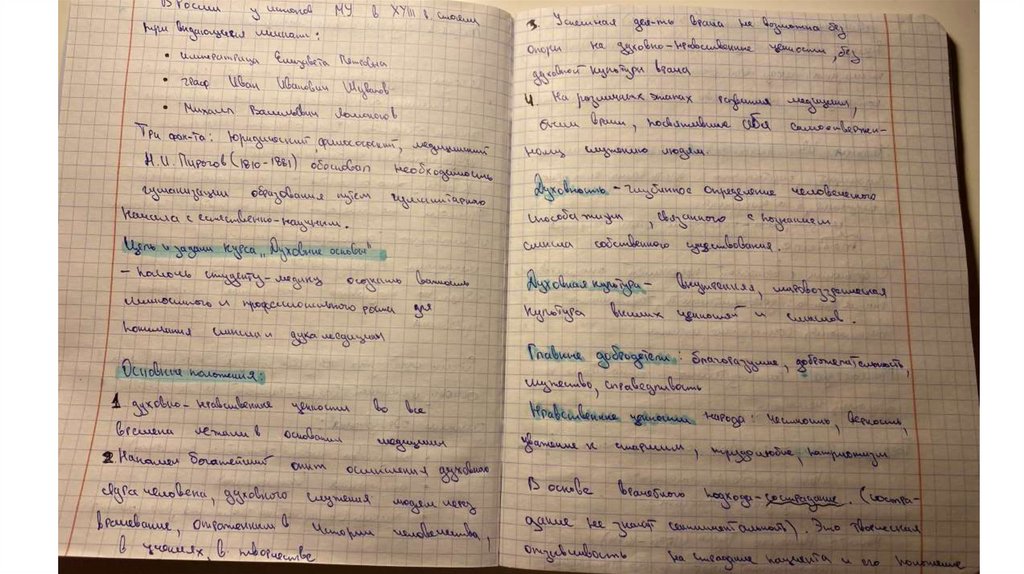 В России у истоков МУ в XVIII в. стояли
три выдающиеся личности:
• императрица Елизавета Петровна
• граф Иван Иванович Шувалов
• Михаил Васильевич Ломоносов
Три фак-та: юридический, философский, медицинский
Н.И. Пирогов (1810-1881) обосновал необходимость
гуманизации образования путём гуманитарного
начала с естественно-научным.
Цель и задачи курса „Духовные основы"
– помочь студенту-медику осознать важность
личностного и профессионального роста для
понимания смысла и духа медицины
Основные положения:
1 духовно-нравственные ценности во все
времена лежали в основании медицины
2. Накоплен богатейший опыт осмысления духовного
склада человека, духовного служения людям через
врачевание, отраженный в истории человечества,
в учениях, в творчестве
3. Успешная деят-ть врача не возможна без
опоры на духовно-нравственные ценности, без
духовной культуры врача
4. На различных этапах развития медицины,
были врачи, посвятившие себя самоотвержен-
ному служению людям.
Духовность – глубинное определение человеческого
способа жизни, связанного с познанием
смысла собственного существования.
Духовная культура – внутренняя, мировоззренческая
культура высших ценностей и смыслов.
Главные добродетели: благоразумие, доброжелательность,
мужество, справедливость
Нравственные ценности народа: честность, верность,
уважение к старшим, трудолюбие, патриотизм
В основе врачебного подхода – сострадание. (состра-
дание не значит сентиментальность). Это творческая
отзывчивость на страдание пациента и его положение